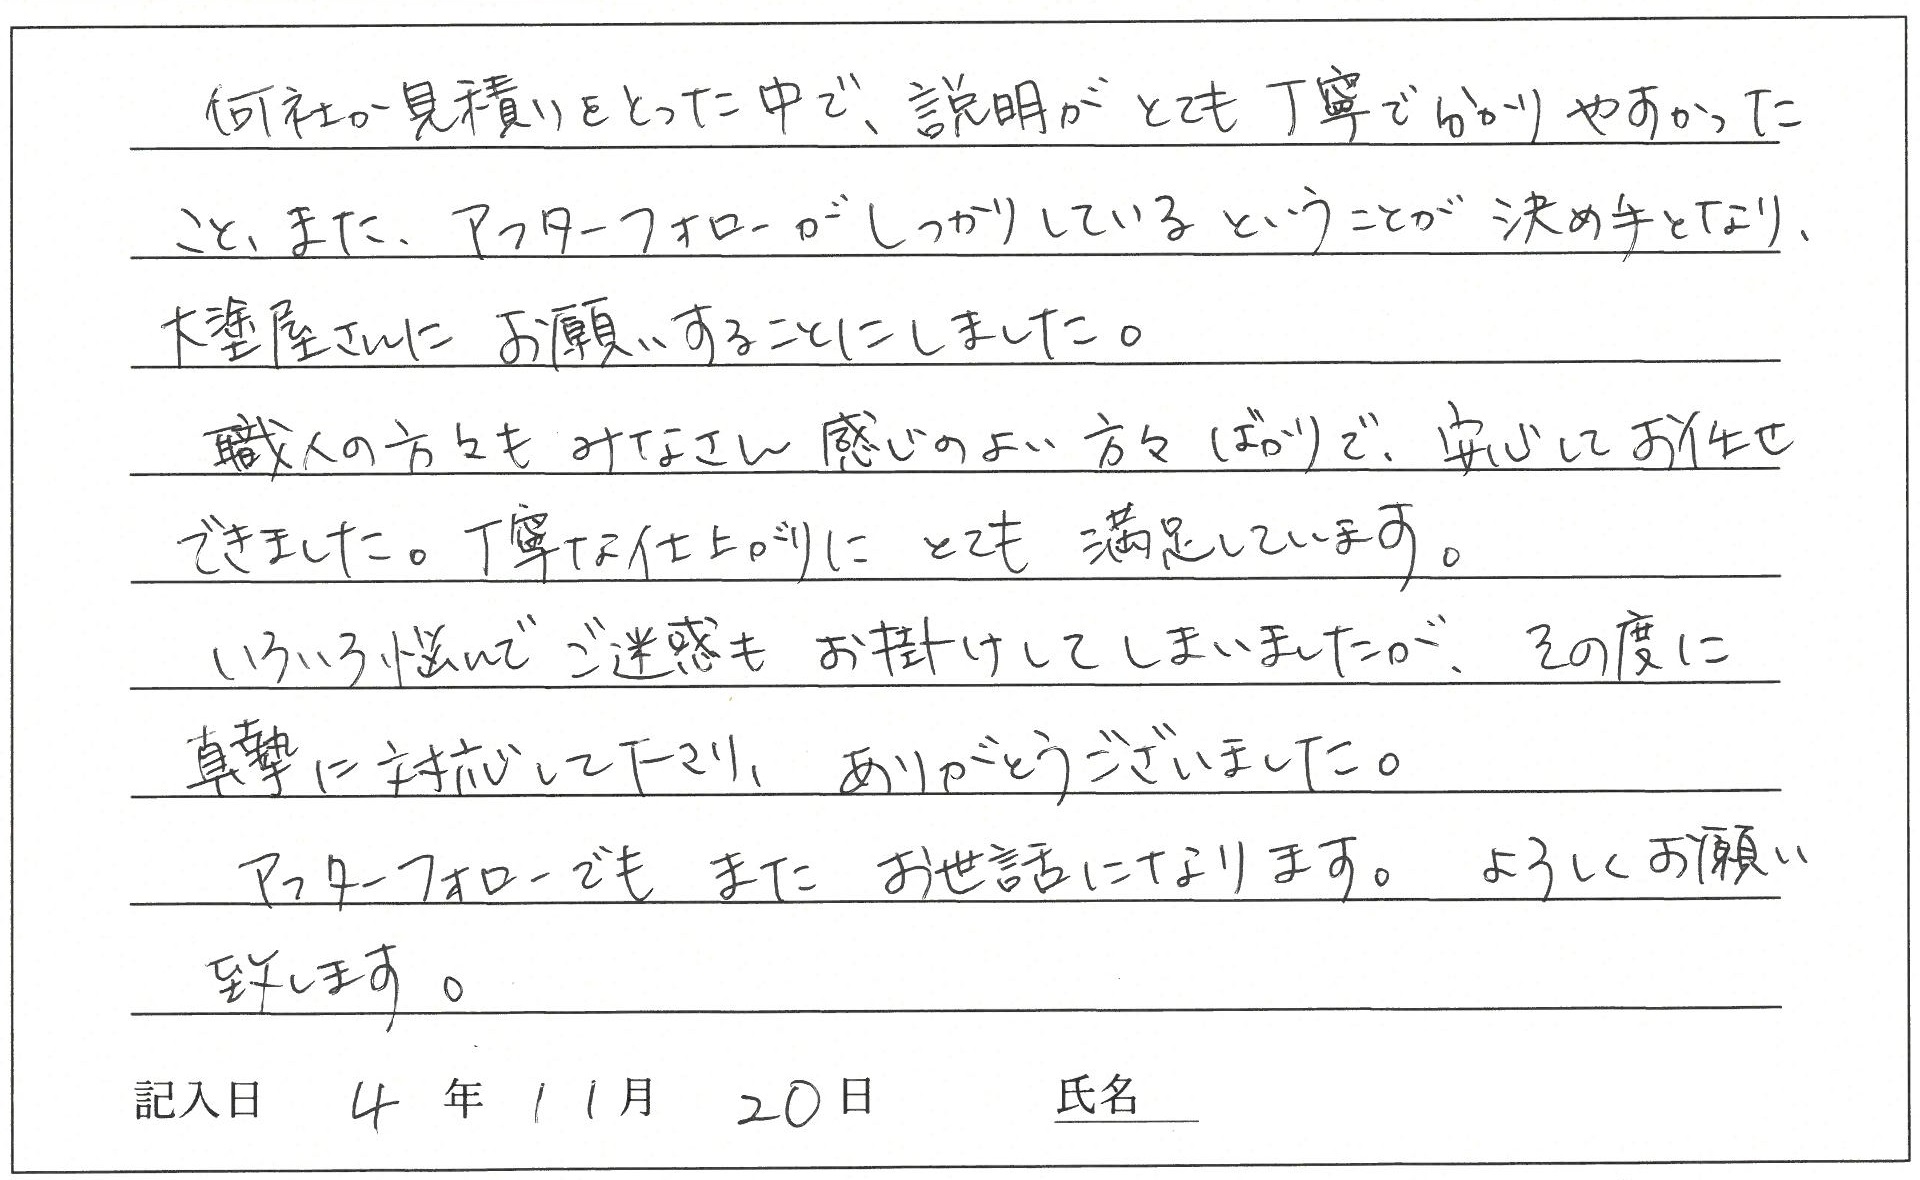 何社か見積りをとった中で、説明がとても丁寧で分かりやすかった
こと、また、アフターフォローがしっかりしているということが決め手となり、
大塗屋さんにお願いすることにしました。
職人の方々もみなさん感じのよい方々ばかりで、安心してお任せ
できました。丁寧な仕上がりにとても満足しています。
いろいろ悩んでご迷惑もお掛けしてしまいましたが、その度に
真摯に対応して下さり、ありがとうございました。
アフターフォローでもまたお世話になります。よろしくお願い
致します。
記入日 4年11月20日 氏名